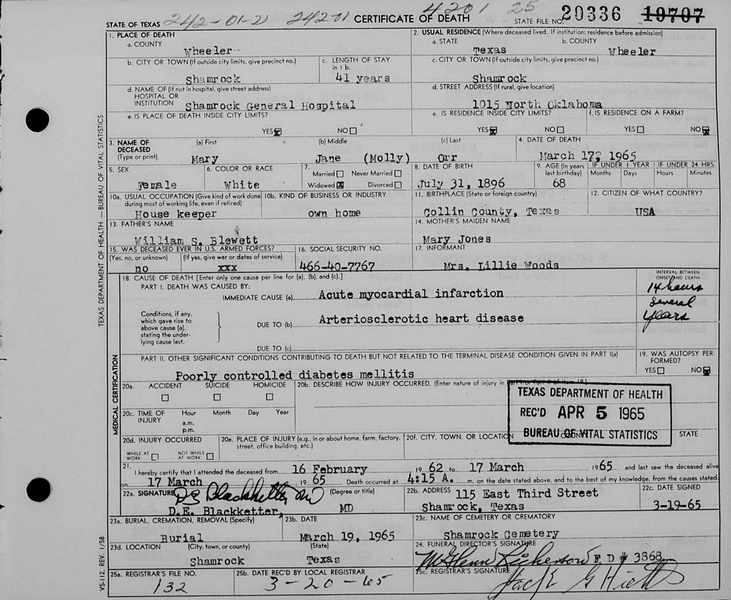 STATE OF TEXAS 242-01-2 24201 CERTIFICATE OF DEATH 4201 25 STATE FILE NO. 20336 19707
1. PLACE OF DEATH 2. USUAL RESIDENCE (Where deceased lived. If institution: residence before admission)
a. COUNTY a. STATE b. COUNTY
Wheeler Texas Wheeler
b. CITY OR TOWN (If outside city limits, give precinct no.) c. LENGTH OF STAY in 1 b. c. CITY OR TOWN (If outside city limits, give precinct no.)
Shamrock 41 years Shamrock
d. NAME OF (If not in hospital, give street address) d. STREET ADDRESS (If rural, give location)
HOSPITAL OR
INSTITUTION Shamrock General Hospital 1015 North Oklahoma
e. IS PLACE OF DEATH INSIDE CITY LIMITS? e. IS RESIDENCE INSIDE CITY LIMITS? f. IS RESIDENCE ON A FARM?
YES NO YES NO YES NO
3. NAME OF DECEASED (a) First (b) Middle (c) Last 4. DATE OF DEATH
(Type or print) Mary Jane (Molly) Orr March 17, 1965
5. SEX 6. COLOR OR RACE 7. Married Never Married 8. DATE OF BIRTH 9. AGE (In years last birthday) IF UNDER 1 YEAR IF UNDER 24 HRS
Months Days Hours Minutes
Female White Widowed Divorced July 31, 1896 68
10a. USUAL OCCUPATION (Give kind of work done during most of working life, even if retired) 10b. KIND OF BUSINESS OR INDUSTRY 11. BIRTHPLACE (State or foreign country) 12. CITIZEN OF WHAT COUNTRY?
House keeper own home Collin County, Texas USA
13. FATHER'S NAME 14. MOTHER'S MAIDEN NAME
William S. Blewett Mary Jones
15. WAS DECEASED EVER IN U.S. ARMED FORCES? 16. SOCIAL SECURITY NO. 17. INFORMANT
(Yes, no, or unknown) (If yes, give war or dates of service)
no xxx 466-40-7767 Mrs. Lillie Woods
18. CAUSE OF DEATH [Enter only one cause per line for (a), (b), and (c).] INTERVAL BETWEEN ONSET AND DEATH
PART I. DEATH WAS CAUSED BY:
IMMEDIATE CAUSE (a) Acute myocardial infarction 14 hours
Conditions, if any, which gave rise to above cause (a), stating the underlying cause last.
DUE TO (b) Arteriosclerotic heart disease several years
DUE TO (c)
PART II. OTHER SIGNIFICANT CONDITIONS CONTRIBUTING TO DEATH BUT NOT RELATED TO THE TERMINAL DISEASE CONDITION GIVEN IN PART I(a) 19. WAS AUTOPSY PERFORMED?
Poorly controlled diabetes mellitis YES NO
20a. ACCIDENT SUICIDE HOMICIDE 20b. DESCRIBE HOW INJURY OCCURRED. (Enter nature of injury in
20c. TIME OF INJURY Hour Month Day Year
a.m.
p.m.
TEXAS DEPARTMENT OF HEALTH
REC'D APR 5 1965
BUREAU OF VITAL STATISTICS
20d. INJURY OCCURRED 20e. PLACE OF INJURY (e.g., in or about home, farm, factory, street, office building, etc.) 20f. CITY, TOWN, OR LOCATION STATE
WHILE AT WORK NOT WHILE AT WORK
21. I hereby certify that I attended the deceased from 16 February 19 62 to 17 March 19 65 and last saw the deceased alive
on 17 March 19 65 Death occurred at 4:15 A. m. on the date stated above, and to the best of my knowledge, from the causes stated.
22a. SIGNATURE D E Blackketter MD (Degree or title) 22b. ADDRESS 115 East Third Street 22c. DATE SIGNED
D.E. Blackketter, MD Shamrock, Texas 3-19-65
23a. BURIAL, CREMATION, REMOVAL (Specify) 23b. DATE 23c. NAME OF CEMETERY OR CREMATORY
Burial March 19, 1965 Shamrock Cemetery
23d. LOCATION (City, town, or county) (State) 24. FUNERAL DIRECTOR'S SIGNATURE
Shamrock Texas Richerson F D # 3368
25a. REGISTRAR'S FILE NO. 25b. DATE REC'D BY LOCAL REGISTRAR 25c. REGISTRAR'S SIGNATURE
132 3-20-65 Jack G
TEXAS DEPARTMENT OF HEALTH — BUREAU OF VITAL STATISTICS
MEDICAL CERTIFICATION
VS-112, REV. 1/58